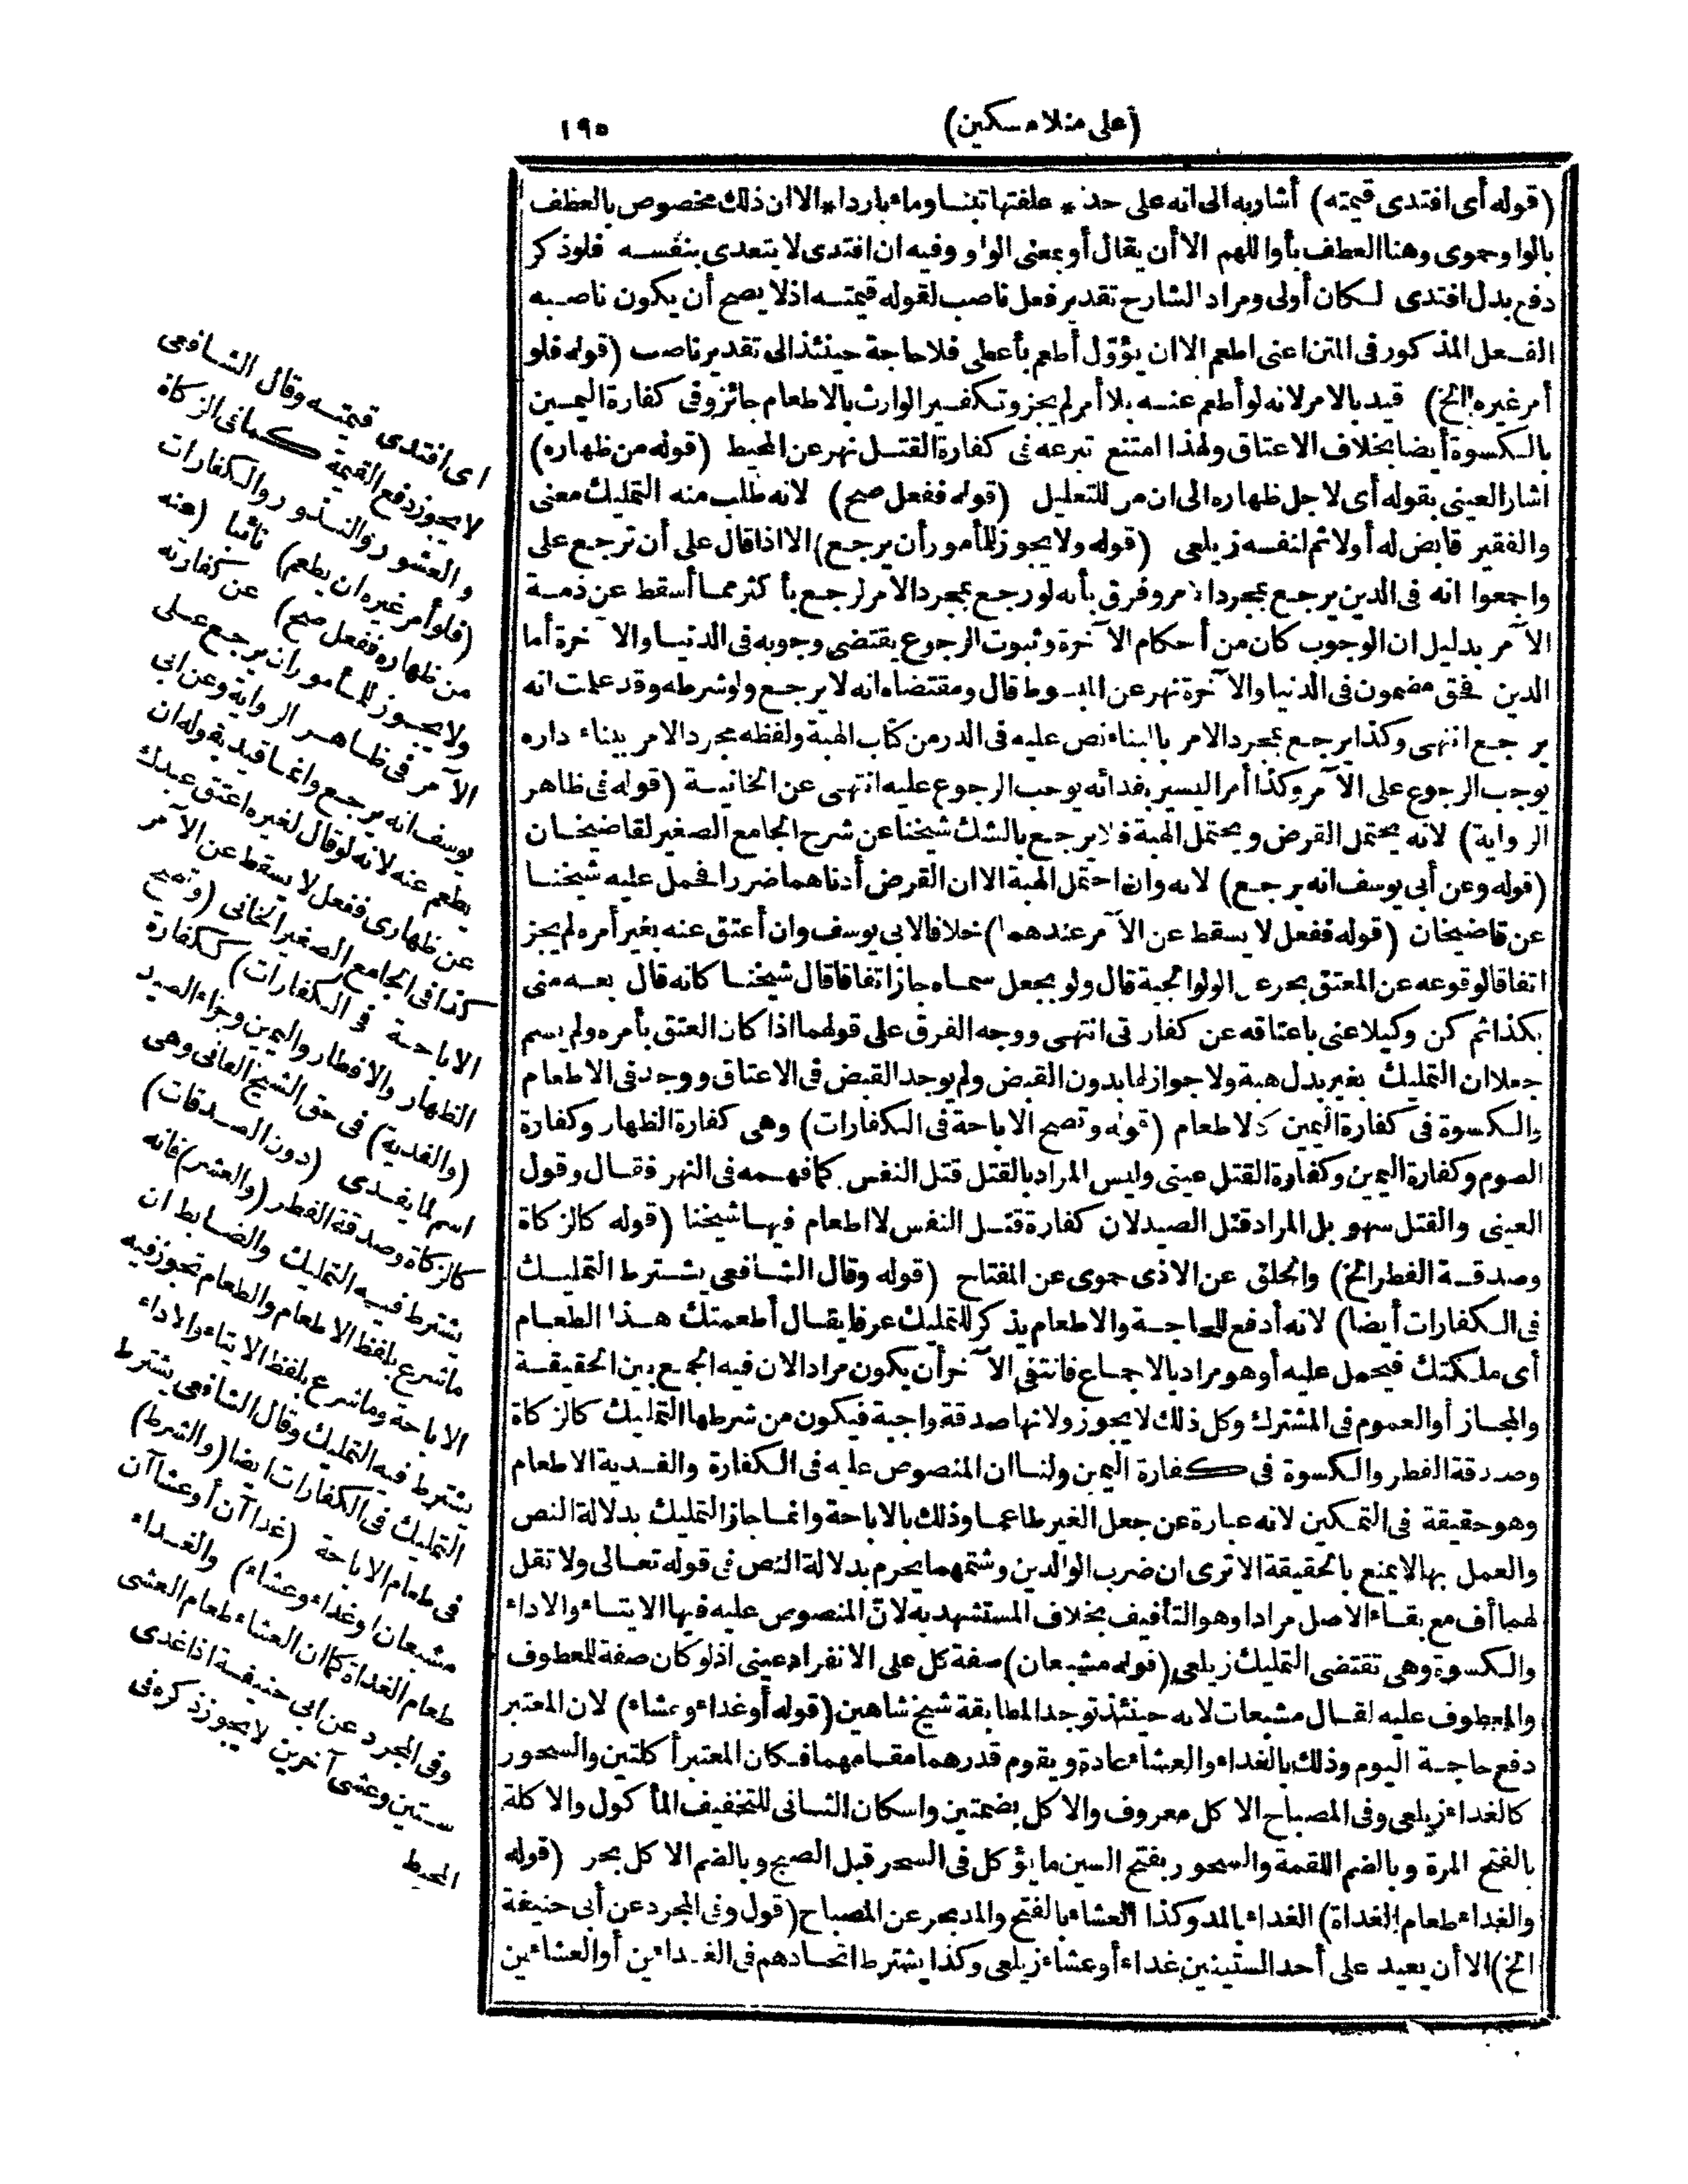 (على منلا مسكين)
١٩٥
(قوله أى افتدى قيمته) أشار به الى انه على حد * علفتها تبنا وماء باردا * الا ان ذلك مخصوص بالعطف
بالواو حموى وهنا العطف بأو اللهم الا أن يقال أو بمعنى الواو وفيه ان افتدى لا يتعدى بنفسه فلو ذكر
دفع بدل افتدى لكان أولى ومراد الشارح تقدير فعل ناصب لقوله قيمته اذ لا يصح أن يكون ناصبه
الفعل المذكور فى المتن اعنى اطعم الا ان يؤوّل أطعم بأعطى فلا حاجة حينئذ الى تقدير ناصب (قوله فلو
أمر غيره الخ) قيد بالامر لانه لو أطعم عنه بلا أمر لم يجز وتكفير الوارث بالاطعام جائز وفى كفارة اليمين
بالكسوة أيضا بخلاف الاعتاق ولهذا امتنع تبرعه فى كفارة القتل نهر عن المحيط (قوله من ظهاره)
اشار العينى بقوله أى لاجل ظهاره الى ان من للتعليل (قوله ففعل صح) لانه طلب منه التمليك معنى
والفقير قابض له أولا ثم لنفسه زيلعى (قوله ولا يجوز للأمور أن يرجع) الا اذا قال على أن ترجع على
واجمعوا انه فى الدين يرجع بمجرد الامر وفرق بأنه لو رجع بمجرد الامر لرجع بأكثر مما أسقط عن ذمة
الآمر بدليل ان الوجوب كان من أحكام الآخرة وثبوت الرجوع يقتضى وجوبه فى الدنيا والآخرة أما
الدين فحق مضمون فى الدنيا والآخرة نهر عن المبسوط قال ومقتضاه انه لا يرجع ولو شرطه وقد علمت انه
يرجع انتهى وكذا يرجع بمجرد الامر بالبناء نص عليه فى الدر من كتاب الهبة ولفظه مجرد الامر ببناء داره
يوجب الرجوع على الآمر وكذا أمر اليسير بفدائه يوجب الرجوع عليه انتهى عن الخانية (قوله فى ظاهر
الرواية) لانه يحتمل القرض ويحتمل الهبة فلا يرجع بالشك شيخنا عن شرح الجامع الصغير لقاضيخان
(قوله وعن أبى يوسف انه يرجع) لانه وان احتمل الهبة الا ان القرض أدناهما ضررا فحمل عليه شيخنا
عن قاضيخان (قوله ففعل لا يسقط عن الآمر عندهما) خلافا لابى يوسف وان أعتق عنه بغير أمره لم يجز
اتفاقا لوقوعه عن المعتق بحر عن الولوالجية قال ولو بجعل سماه جاز اتفاقا قال شيخنا كانه قال بعه منى
بكذا ثم كن وكيلا عنى باعتاقه عن كفارتى انتهى ووجه الفرق على قولهما اذا كان العتق بأمره ولم يسم
جعلا ان التمليك بغير بدل هبة ولا جواز لها بدون القبض ولم يوجد القبض فى الاعتاق ووجد فى الاطعام
والكسوة فى كفارة اليمين كالاطعام (قوله وتصح الاباحة فى الكفارات) وهى كفارة الظهار وكفارة
الصوم وكفارة اليمين وكفارة القتل عينى وليس المراد بالقتل قتل النفس كما فهمه فى النهر فقال وقول
العينى والقتل سهو بل المراد قتل الصيد لان كفارة قتل النفس لا اطعام فيها شيخنا (قوله كالزكاة
وصدقة الفطر الخ) والحلق عن الاذى حموى عن المفتاح (قوله وقال الشافعى يشترط التمليك
فى الكفارات أيضا) لانه أدفع للحاجة والاطعام يذكر للتمليك عرفا يقال أطعمتك هذا الطعام
أى ملكتك فيحمل عليه أو هو مراد بالاجماع فانتفى الآخر أن يكون مرادا لان فيه الجمع بين الحقيقة
والمجاز أو العموم فى المشترك وكل ذلك لا يجوز ولانها صدقة واجبة فيكون من شرطها التمليك كالزكاة
وصدقة الفطر والكسوة فى كفارة اليمين ولنا ان المنصوص عليه فى الكفارة والفدية الاطعام
وهو حقيقة فى التمكين لانه عبارة عن جعل الغير طاعما وذلك بالاباحة وانما جاز التمليك بدلالة النص
والعمل بها لا يمنع بالحقيقة الا ترى ان ضرب الوالدين وشتمهما يحرم بدلالة النص فى قوله تعالى ولا تقل
لهما أف مع بقاء الاصل مرادا وهو التأفيف بخلاف المستشهد به لانّ المنصوص عليه فيها الايتاء والاداء
والكسوة وهى تقتضى التمليك زيلعى (قوله مشبعان) صفة كل على الانفراد عينى اذ لو كان صفة للمعطوف
والمعطوف عليه لقال مشبعات لانه حينئذ توجد المطابقة شيخ شاهين (قوله أو غداء وعشاء) لان المعتبر
دفع حاجة اليوم وذلك بالغداء والعشاء عادة ويقوم قدرهما مقامهما فكان المعتبر أكلتين والسحور
كالغداء زيلعى وفى المصباح الاكل معروف والاكل بضمتين واسكان الثانى للتخفيف المأكول والاكلة
بالفتح المرة وبالضم اللقمة والسحور بفتح السين ما يؤكل فى السحر قبل الصبح وبالضم الاكل بحر (قوله
والغداء طعام الغداة) الغداء بالمد وكذا العشاء بالفتح والمد بحر عن المصباح (قول وفى المجرد عن أبى حنيفة
الخ) الا أن يعيد على أحد الستينين غداء أو عشاء زيلعى وكذا يشترط اتحادهم فى الغداءين أو العشاءين
اى افتدى قيمته وقال الشافعى
لا يجوز دفع القيمة كما فى الزكاة
والعشور والنذور والكفارات
(فلو أمر غيره ان يطعم) نائبا (عنه
من ظهاره ففعل صح) عن كفارته
ولا يجوز للأمور ان يرجع على
الآمر فى ظاهر الرواية وعن ابى
يوسف انه يرجع وانما قيد بقوله ان
يطعم عنه لانه لو قال لغيره اعتق عبدك
عن ظهارى ففعل لا يسقط عن الآمر
كذا فى الجامع الصغير الخانى (وتصح
الاباحة فى الكفارات) ككفارة
الظهار والافطار واليمين وجزاء الصيد
(والفدية) فى حق الشيخ الفانى وهى
اسم لما يفدى (دون الصدقات)
كالزكاة وصدقة الفطر (والعشر) فانه
يشترط فيه التمليك والضابط ان
ما شرع بلفظ الاطعام والطعام تجوز فيه
الاباحة وما شرع بلفظ الايتاء والاداء
يشترط فيه التمليك وقال الشافعى يشترط
التمليك فى الكفارات ايضا (والشرط)
فى طعام الاباحة (غدا آن أو عشا آن
مشبعان او غداء وعشاء) والغداء
طعام الغداة كما ان العشاء طعام العشى
وفى المجرد عن ابى حنيفة اذا غدى
ستين وعشى آخرين لا يجوز ذكره فى
المحيط